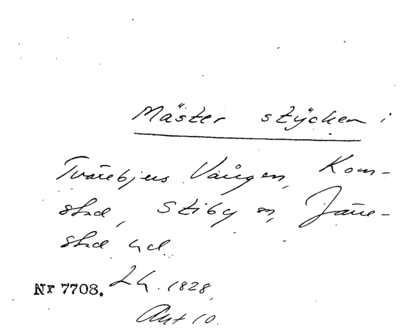 Mäster stycken i
Tvärebjers Vången, Kom-
stad, Stiby sn, Järre-
stad hd.
Nr 7708. Lh. 1828
Akt 10.